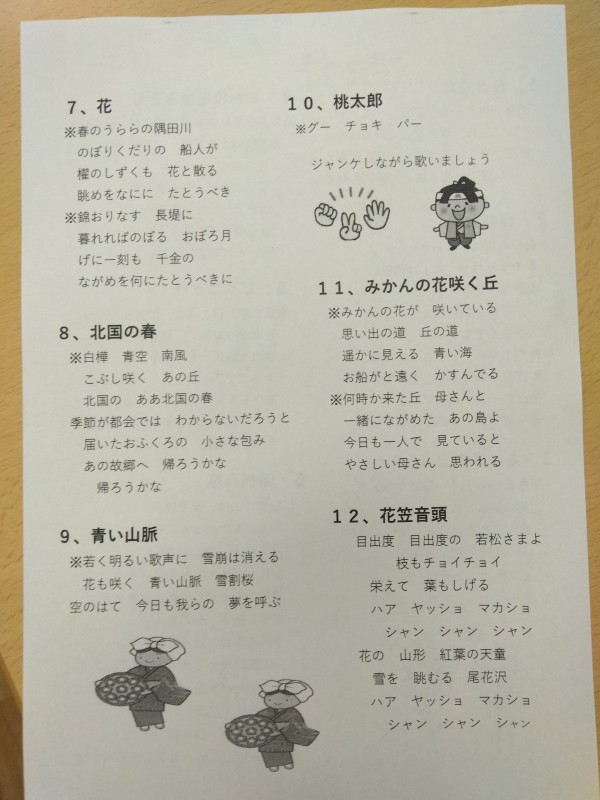 ７、花
※春のうららの隅田川
のぼりくだりの　船人が
櫂のしずくも　花と散る
眺めをなにに　たとうべき
※錦おりなす　長堤に
暮れればのぼる　おぼろ月
げに一刻も　千金の
ながめを何にたとうべきに
８、北国の春
※白樺　青空　南風
こぶし咲く　あの丘
北国の　ああ北国の春
季節が都会では　わからないだろうと
届いたおふくろの　小さな包み
あの故郷へ　帰ろうかな
帰ろうかな
９、青い山脈
※若く明るい歌声に　雪崩は消える
花も咲く　青い山脈　雪割桜
空のはて　今日も我らの　夢を呼ぶ
１０、桃太郎
※グー　チョキ　パー
ジャンケしながら歌いましょう
１１、みかんの花咲く丘
※みかんの花が　咲いている
思い出の道　丘の道
遥かに見える　青い海
お船がと遠く　かすんでる
※何時か来た丘　母さんと
一緒にながめた　あの島よ
今日も一人で　見ていると
やさしい母さん　思われる
１２、花笠音頭
目出度　目出度の　若松さまよ
枝もチョイチョイ
栄えて　葉もしげる
ハア　ヤッショ　マカショ
シャン　シャン　シャン
花の　山形　紅葉の天童
雪を　眺むる　尾花沢
ハア　ヤッショ　マカショ
シャン　シャン　シャン